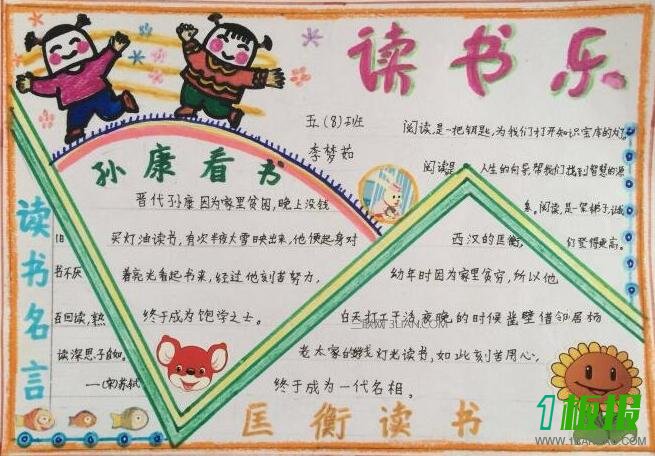 读书乐
五(8)班
李梦茹
阅读,是一把钥匙,为我们打开知识宝库的大门
阅读是
人生的向导,帮我们找到智慧的源
泉。阅读,是一架梯子,让我
们登得更高。
孙康看书
晋代孙康因为家里贫困,晚上没钱
买灯油读书,有次半夜大雪映出来,他便起身对
着亮光看起书来,经过他刻苦努力,
终于成为饱学之士。
读书名言
旧
书不厌
百回读,熟
读深思子自知。
—(宋)苏轼
西汉的匡衡,
幼年时因为家里贫穷,所以他
白天打工于活,夜晚的时候凿壁借邻居杨
老太家的烛灯光读书,如此刻苦用心,
终于成为一代名相。
匡衡读书
三联网 3LIAN.COM
1板报
WWW.1BANBAO.COM